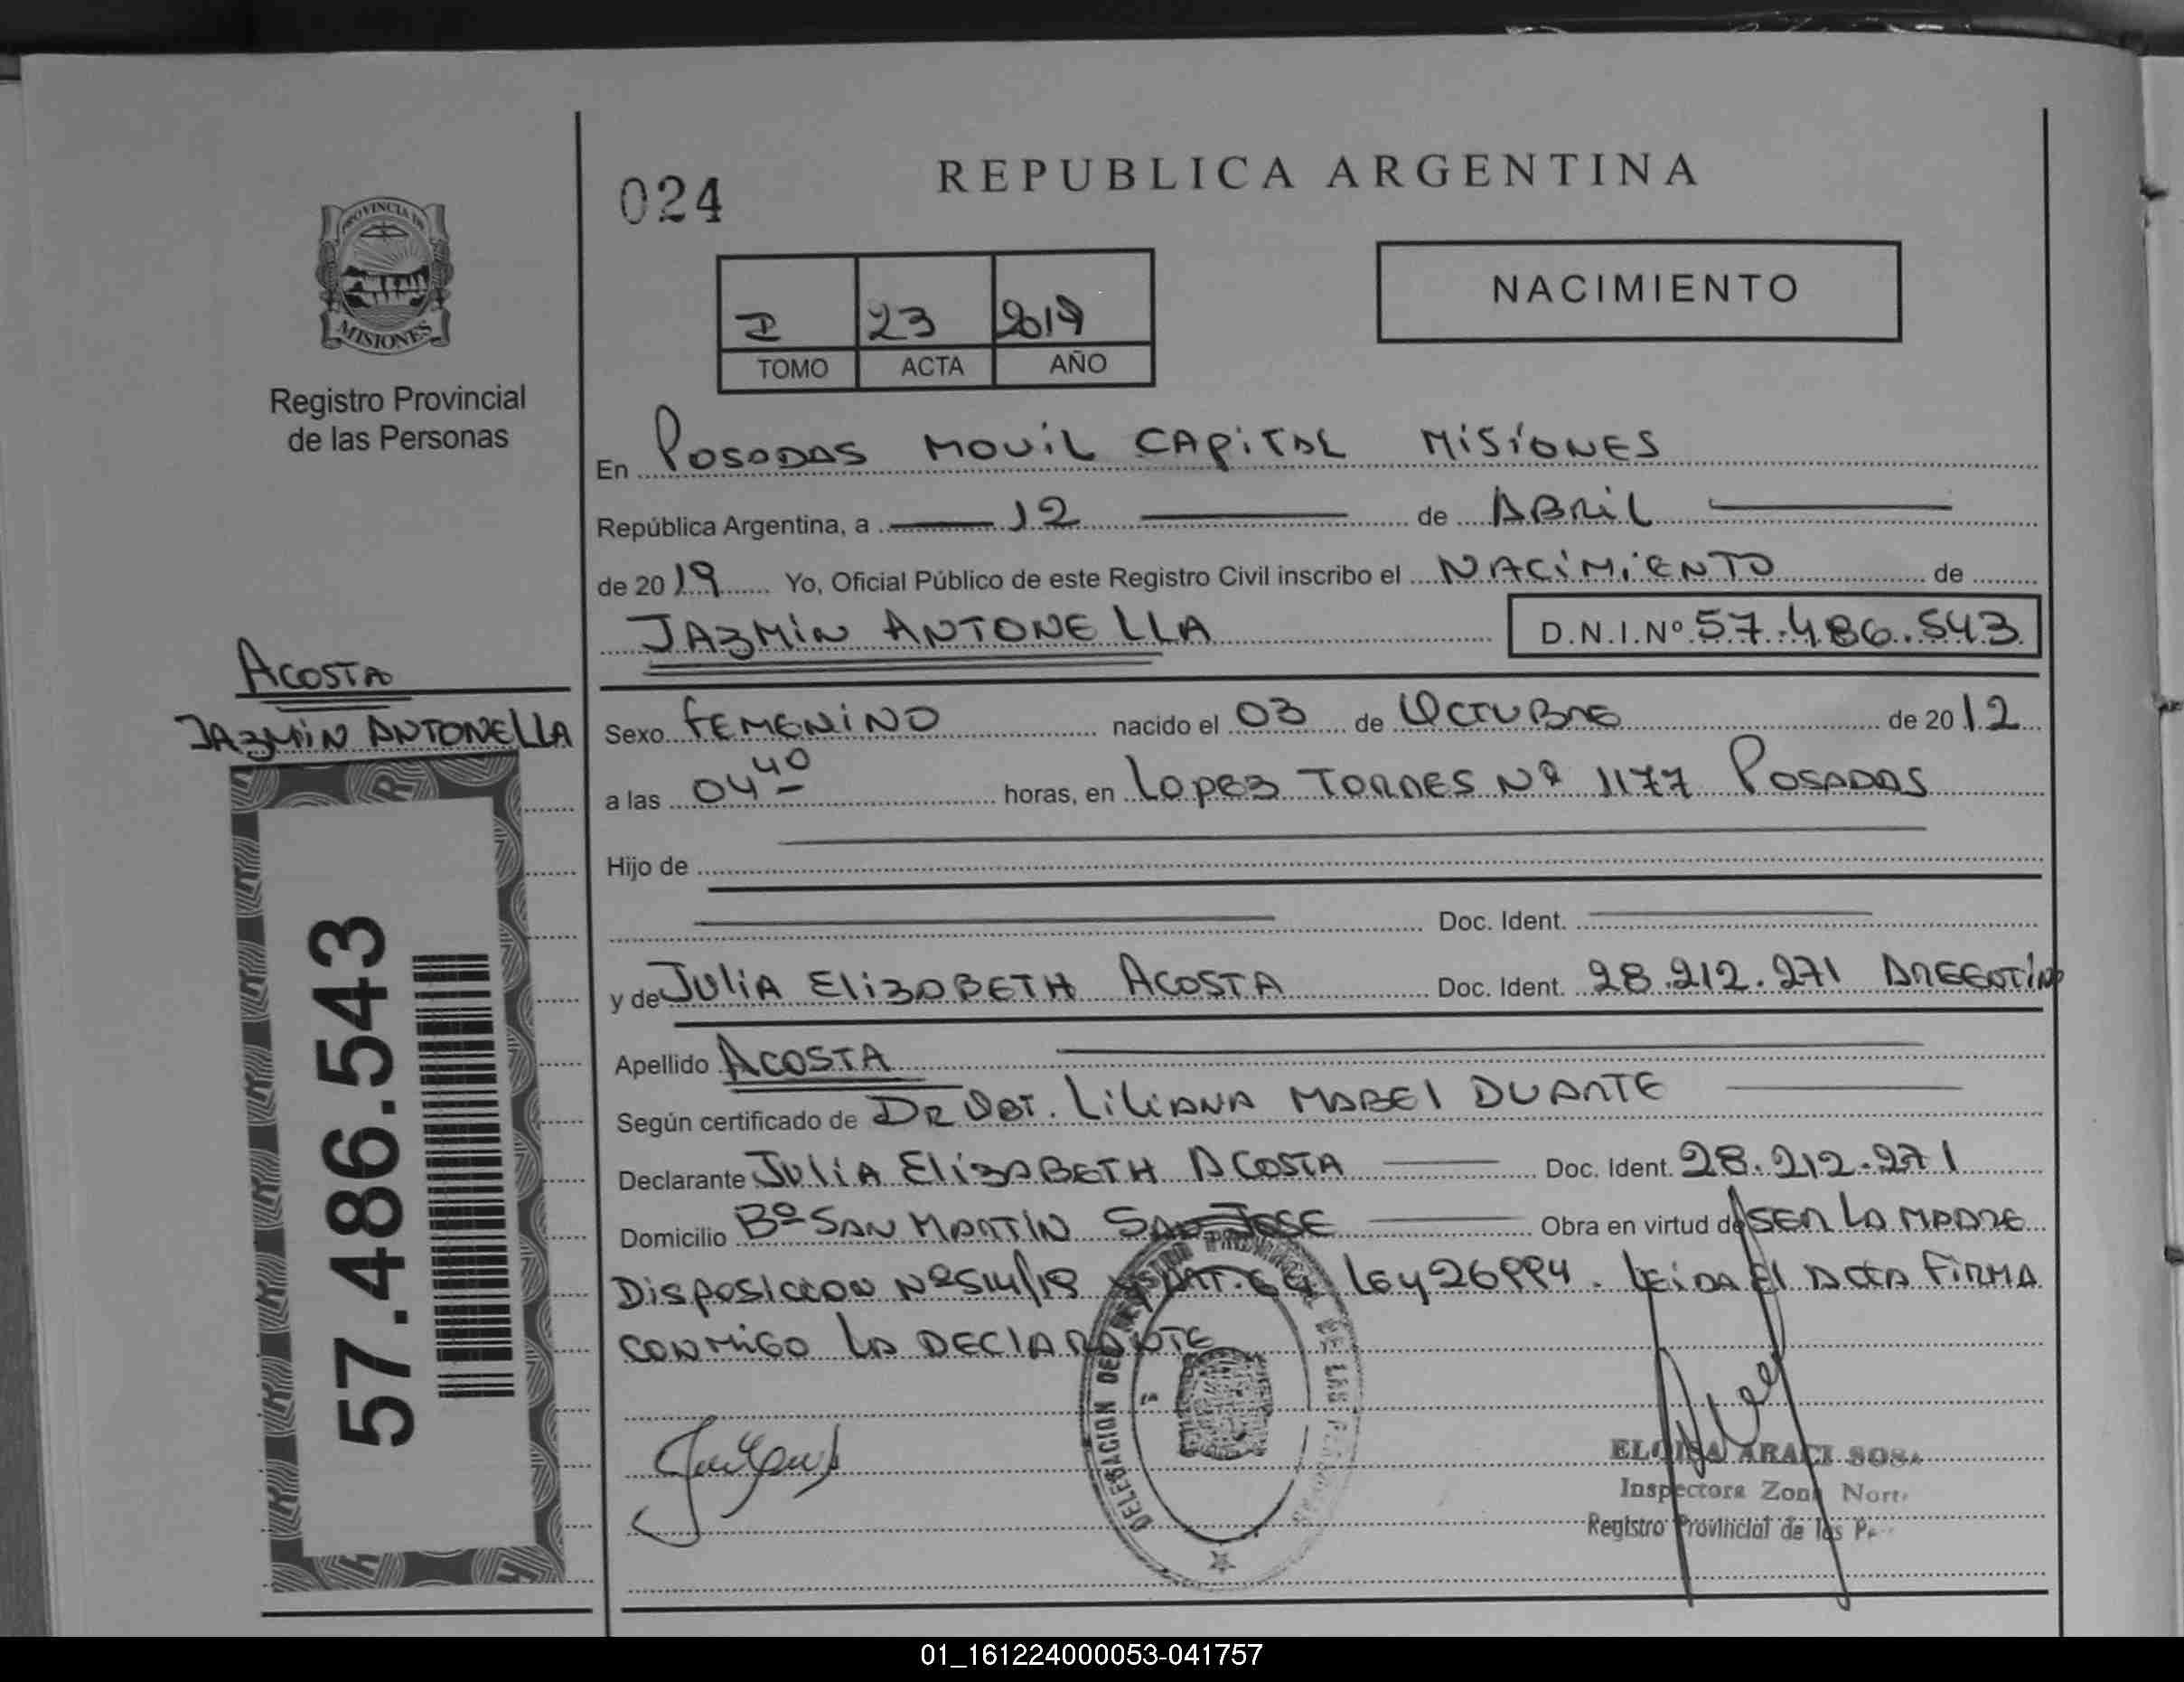 024
REPUBLICA ARGENTINA
PROVINCIA DE
MISIONES
Registro Provincial
de las Personas
I 23 2019
TOMO ACTA AÑO
NACIMIENTO
En POSADAS MOVIL CAPITAL MISIONES
República Argentina, a 12 de ABRIL
de 2019 Yo, Oficial Público de este Registro Civil inscribo el NACIMIENTO de
JAZMIN ANTONELLA D.N.I.Nº 57.486.543
ACOSTA
JAZMIN ANTONELLA
57.486.543
Sexo FEMENINO nacido el 03 de OCTUBRE de 2012
a las 04 40 horas, en LOPEZ TORRES Nº 1177 POSADAS
Hijo de
Doc. Ident.
y de JULIA ELIZABETH ACOSTA Doc. Ident. 28.212.271 ARGENTINA
Apellido ACOSTA
Según certificado de DR OBT. LILIANA MABEL DUARTE
Declarante JULIA ELIZABETH ACOSTA Doc. Ident. 28.212.271
Domicilio Bº SAN MARTIN SAN JOSE Obra en virtud de SER LA MADRE
DISPOSICION Nº 514/18 ART. LEY 26994. LEIDA EL ACTA FIRMA
CONMIGO LA DECLARANTE
DELEGACION DEL REGISTRO PROVINCIAL DE LAS PERSONAS
ELOISA ARACI SOSA
Inspectora Zona Norte
Registro Provincial de las P
01_161224000053-041757